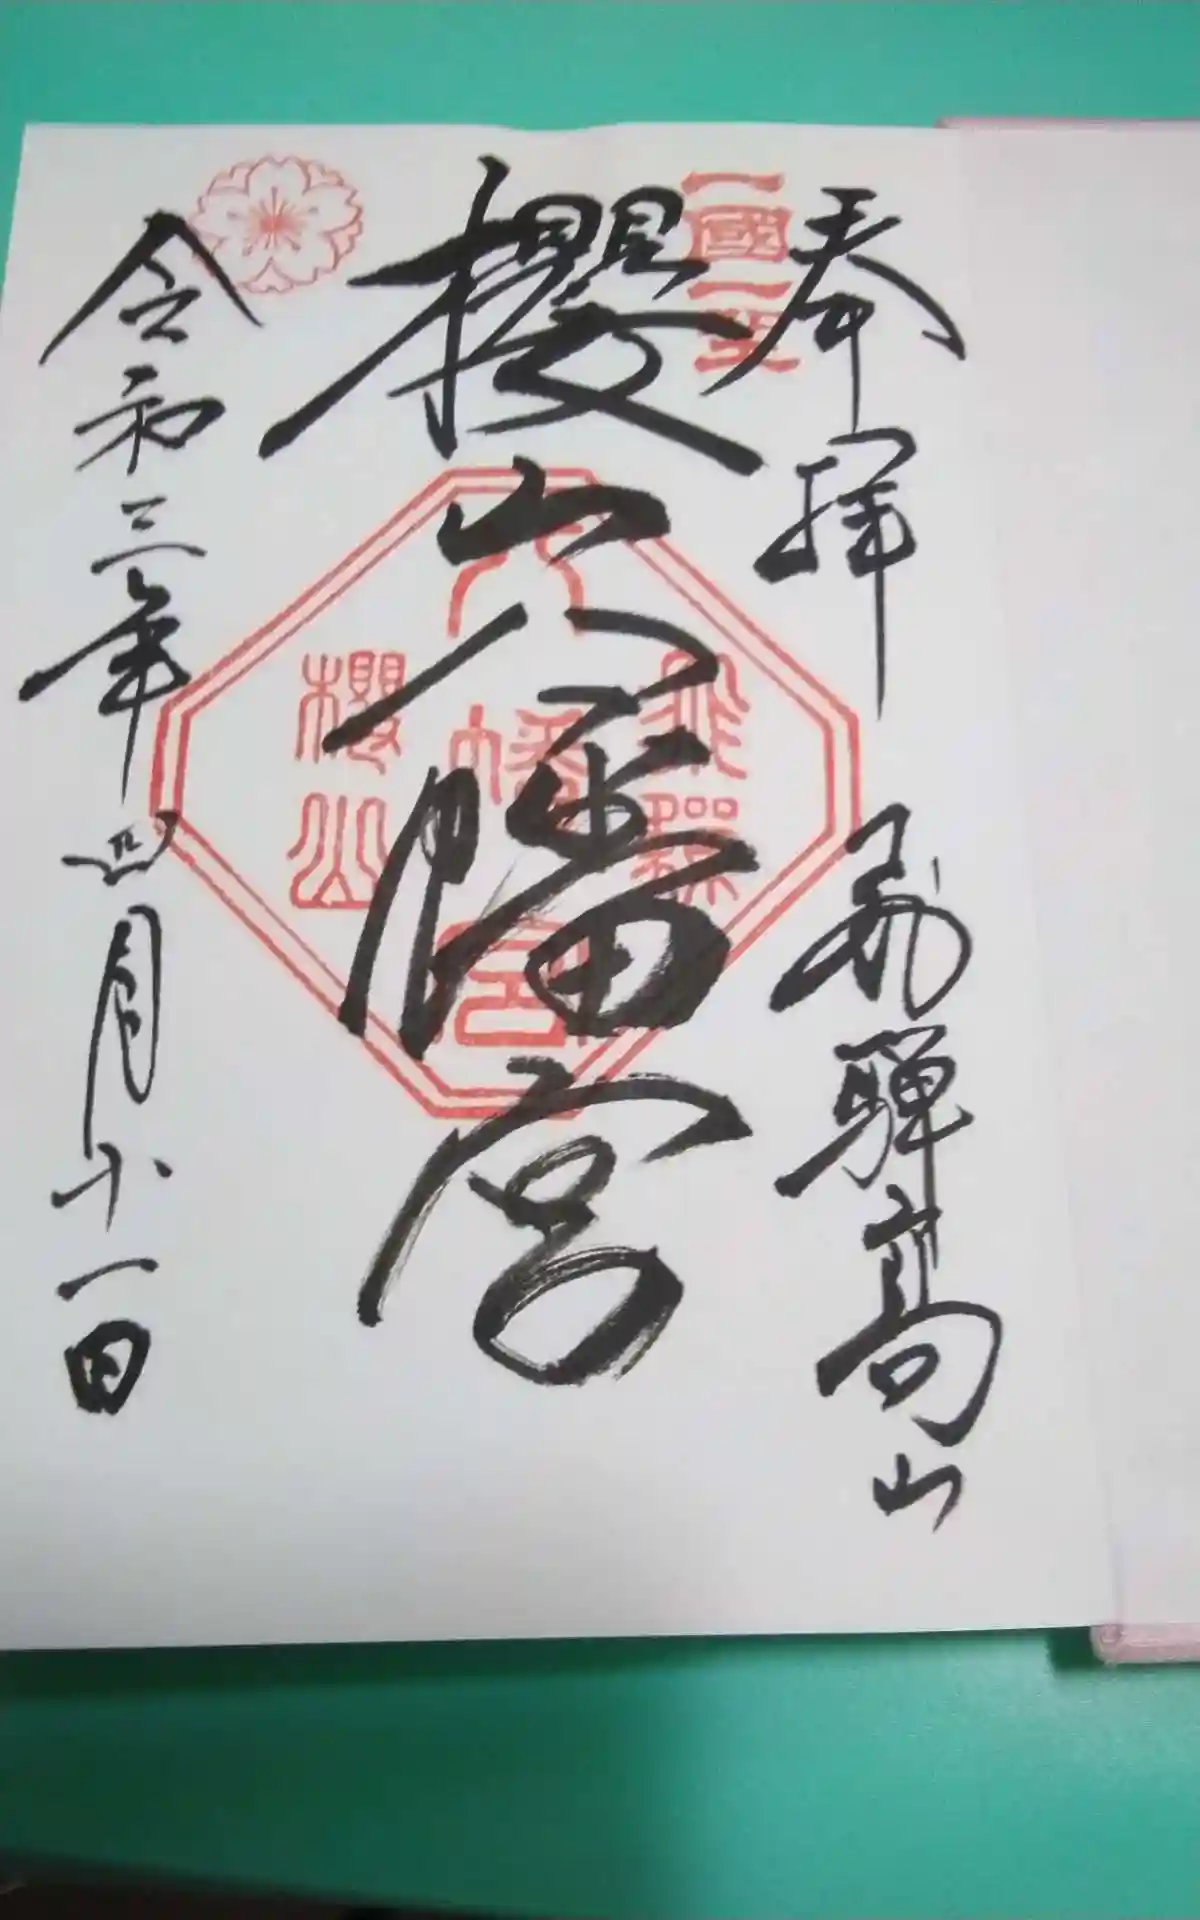 奉拝
飛騨高山
一國一社
櫻山八幡宮
飛騨
八幡宮
櫻山
令和三年四月十一日